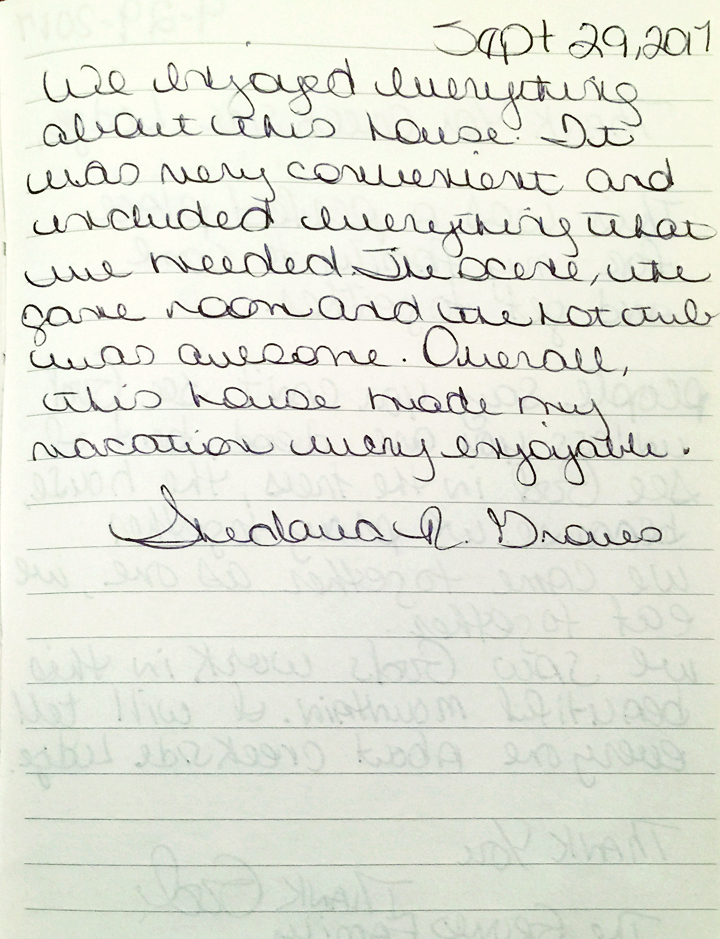 Sept 29, 2017
We enjoyed everything
about this house. It
was very convenient and
included everything that
we needed. The scene, the
game room and the hot tub
was awesome. Overall,
this house made my
vacation very enjoyable.
R. Graves